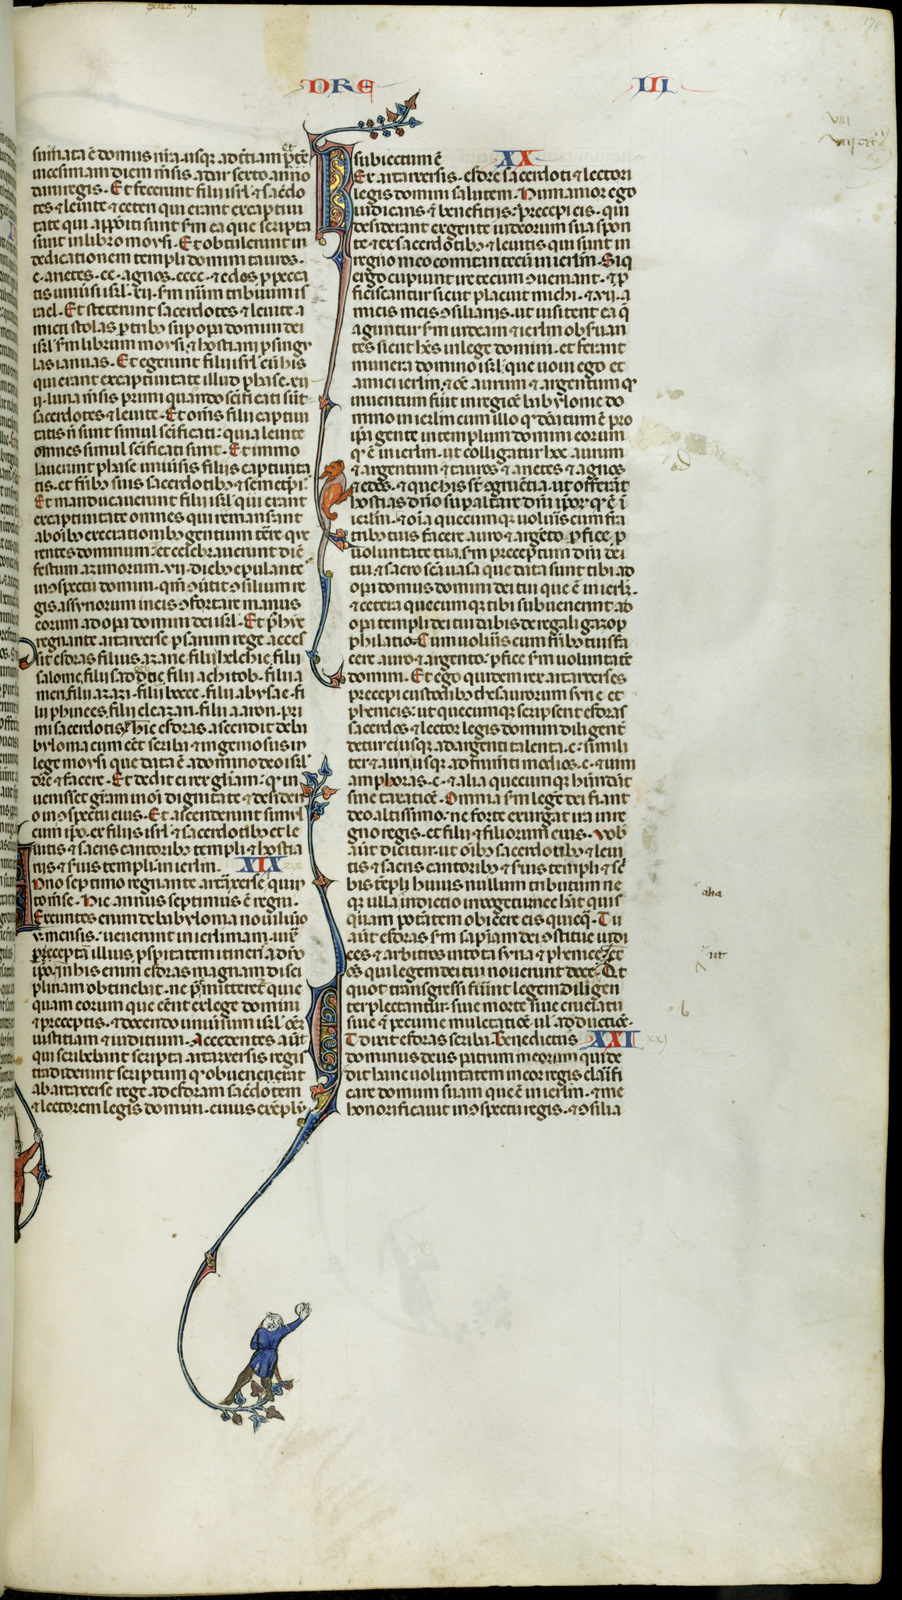 DRE
III
sum̄ata ē domus n̄ra usq; ad t̄ciam et
uicesimam diem m̄sis adar sexto anno
darii regis. Et fecerunt filii isrl̄ & sac̄do
tes & leuite & ceteri qui erant ex captiui
tate qui appōiti sunt s̄m ea que scripta
sunt in libro moysi. Et obtulerunt in
dedicationem templi domini tauros.
c. arietes. cc. agnos. cccc. & edos p̄ pecca
tis uniūsi isrl̄. xii. s̄m nūm tribuum is
rael. Et steterunt sacerdotes & leuite a
micti stolas p̄ tribȝ sup opa domini dei
isrl̄ s̄m librum moysi. & hostiarii p̄ singl'
las ianuas. Et egerunt filii isrl̄ cū his
qui erant ex captiuitate illud phase. xii
ii. luna m̄sis primi quando sc̄ificati sūt
sacerdotes & leuite. Et om̄s filii captiui
tatis n̄ sunt simul sc̄ificati: quia leuite
omnes simul sc̄ificati sunt. Et immo
lauerunt phase uniūsis filiis captiuita
tis. et fr̄ibȝ suis sacerdotibȝ & semetip̄i
Et manducauerunt filii isrl̄ qui erant
ex captiuitate omnes qui remanserant
ab oībȝ execrationibȝ gentium t̄re que
rentes dominum: et celebrauerunt diē
festum azimorum. vii. diebȝ epulante
in ɔspectu domini. qm̄ ɔūtit ɔsilium re
gis assyriorum in eis ɔfortare manus
eorum ad opa domini dei isrl̄. Et p̄ hȳc
regnante artaxerse p̄sarum rege acces
sit esdras filius azarie filii helchie. filii
salome. filii sadoc. filii achitob. filii a
meri. filii azazi. filii bocce. filii abysae. fi
lii phinees. filii eleazari. filii aaron. pri
mi sacerdotis. Hic esdras ascendit de ba
bylonia cum eēt scriba & ingeniosus in
lege moysi que data ē a domino deo isrl̄
dīce & facere. Et dedit ei rex gl̄iam: q' in
uenisset gr̄am in oi dignitate & desideri
o in ɔspectu eius. Et ascenderunt simul
cum ip̄o. ex filiis isrl̄ & sacerdotibȝ et le
uitis & sacris cantoribȝ templi & hostia
riis & s̄uis templi in ierlm̄. XIX
Anno septimo regnante artaxerse quin
to m̄se. Hic annus septimus ē regni.
Exeuntes enim de babylonia nouilunio
v. mensis: uenerunt in ierlimam iux̄
precepta illius p̄spitatem itineris a dn̄o
ip̄o. In his enim esdras magnam disci
plinam obtinebat. ne p̄mitteret que
quam eorum que eēnt ex lege domini
& preceptis. & docendo uniūsum isrl̄ oēm
iustitiam & iuditium. Accedentes aūt
qui scribebant scripta artaxersis regis
tradiderunt scriptum q' obuenerat
ab artaxerse rege ad esdram sac̄dotem
& lectorem legis domini. cuius exemplū
subiectum ē. XX
Rex artaxersis. esdre sacerdoti & lectori
legis domini salutem. Humanior ego
iudicans & benefitiis: precepi eis. qui
desiderant ex gente iudeorum sua spon
te & ex sacerdotibȝ & leuitis qui sunt in
regno meo comitari tecū in ierlm̄. Siq̄
ergo cupiunt ire tecum ɔueniant. & p̄
ficiscantur sicut placuit michi. & vii. a
micis meis ɔsiliariis. ut uisitent ea q̄
aguntur s̄m iudeam & ierlm̄ obseruan
tes sicut h̄es in lege domini. et ferant
munera domino isrl̄ que uoui ego et
amici ierlm̄. & oē aurum & argentum q'
inuentum fuit in regione babylonie do
mino in ierlm̄ cum illo q' donatum ē pro
ip̄a gente in templum domini eorum
q' ē in ierlm̄. ut colligatur hoc aurum
& argentum & tauros & arietes & agnos
& edos. & que his st̄ ɔgruentia. ut offerāt
hostias dn̄o sup altare dn̄i ip̄or̄. q' ē ī
ierlm̄. & oīa quecumq; uoluīs cum fra
tribȝ tuis facere auro & argento p̄fice. p̄
uoluntate tua. s̄m preceptum dn̄i dei
tui. & sacro sc̄a uasa que data sunt tibi ad
opa domus domini dei tui que ē in ierlm̄.
& cetera quecumq; tibi subuenerint ad
opa templi dei tui dabis de regali gazop
philatio. Cum uoluīs cum fr̄ibȝ tuis fa
cere auro & argento: p̄fice s̄m uoluntatē
domini. Et ego quidem rex artaxerses
precepi custodibȝ thesaurorum syrie et
phenicis: ut quecumq; scripserit esdras
sacerdos & lector legis domini diligent̄
detur ei usq; ad argenti talenta. c. simili
ter & aurī. usq; ad frumti modios. c. & uini
amphoras. c. & alia quecumq; habundāt
sine taxatiōe. Omnia s̄m lege dei fiant
deo altissimo: ne forte exurgat ira in re
gno regis. et filii & filiorum eius. Vob'
aūt dicitur ut oībȝ sacerdotibȝ & leui
tis & sacris cantoribȝ & s̄uis templi & sc̄
bis tēpli huius nullum tributum ne
q; ulla indictio irrogetur. nec habeat quis
quam potestatem obicere eis quicq̄. Tu
aūt esdras s̄m sapiam dei ɔstitue iudi
ces & arbitros in tota syria & phenice. & oē
os qui legem dei tui nouerunt doce. Et
quot transgressi fūint legem diligen
ter plectantur. siue morte siue cruciatu
siue & pecunie mulctatiōe. ul' adductiōe.
Et dixit esdras scriba. Benedictus XXI
dominus deus patrum meorum qui de
dit hanc uoluntatem in cor regis clarifi
care domum suam que ē in ierlm̄. & me
honorificauit in ɔspectu regis. & ɔsilia